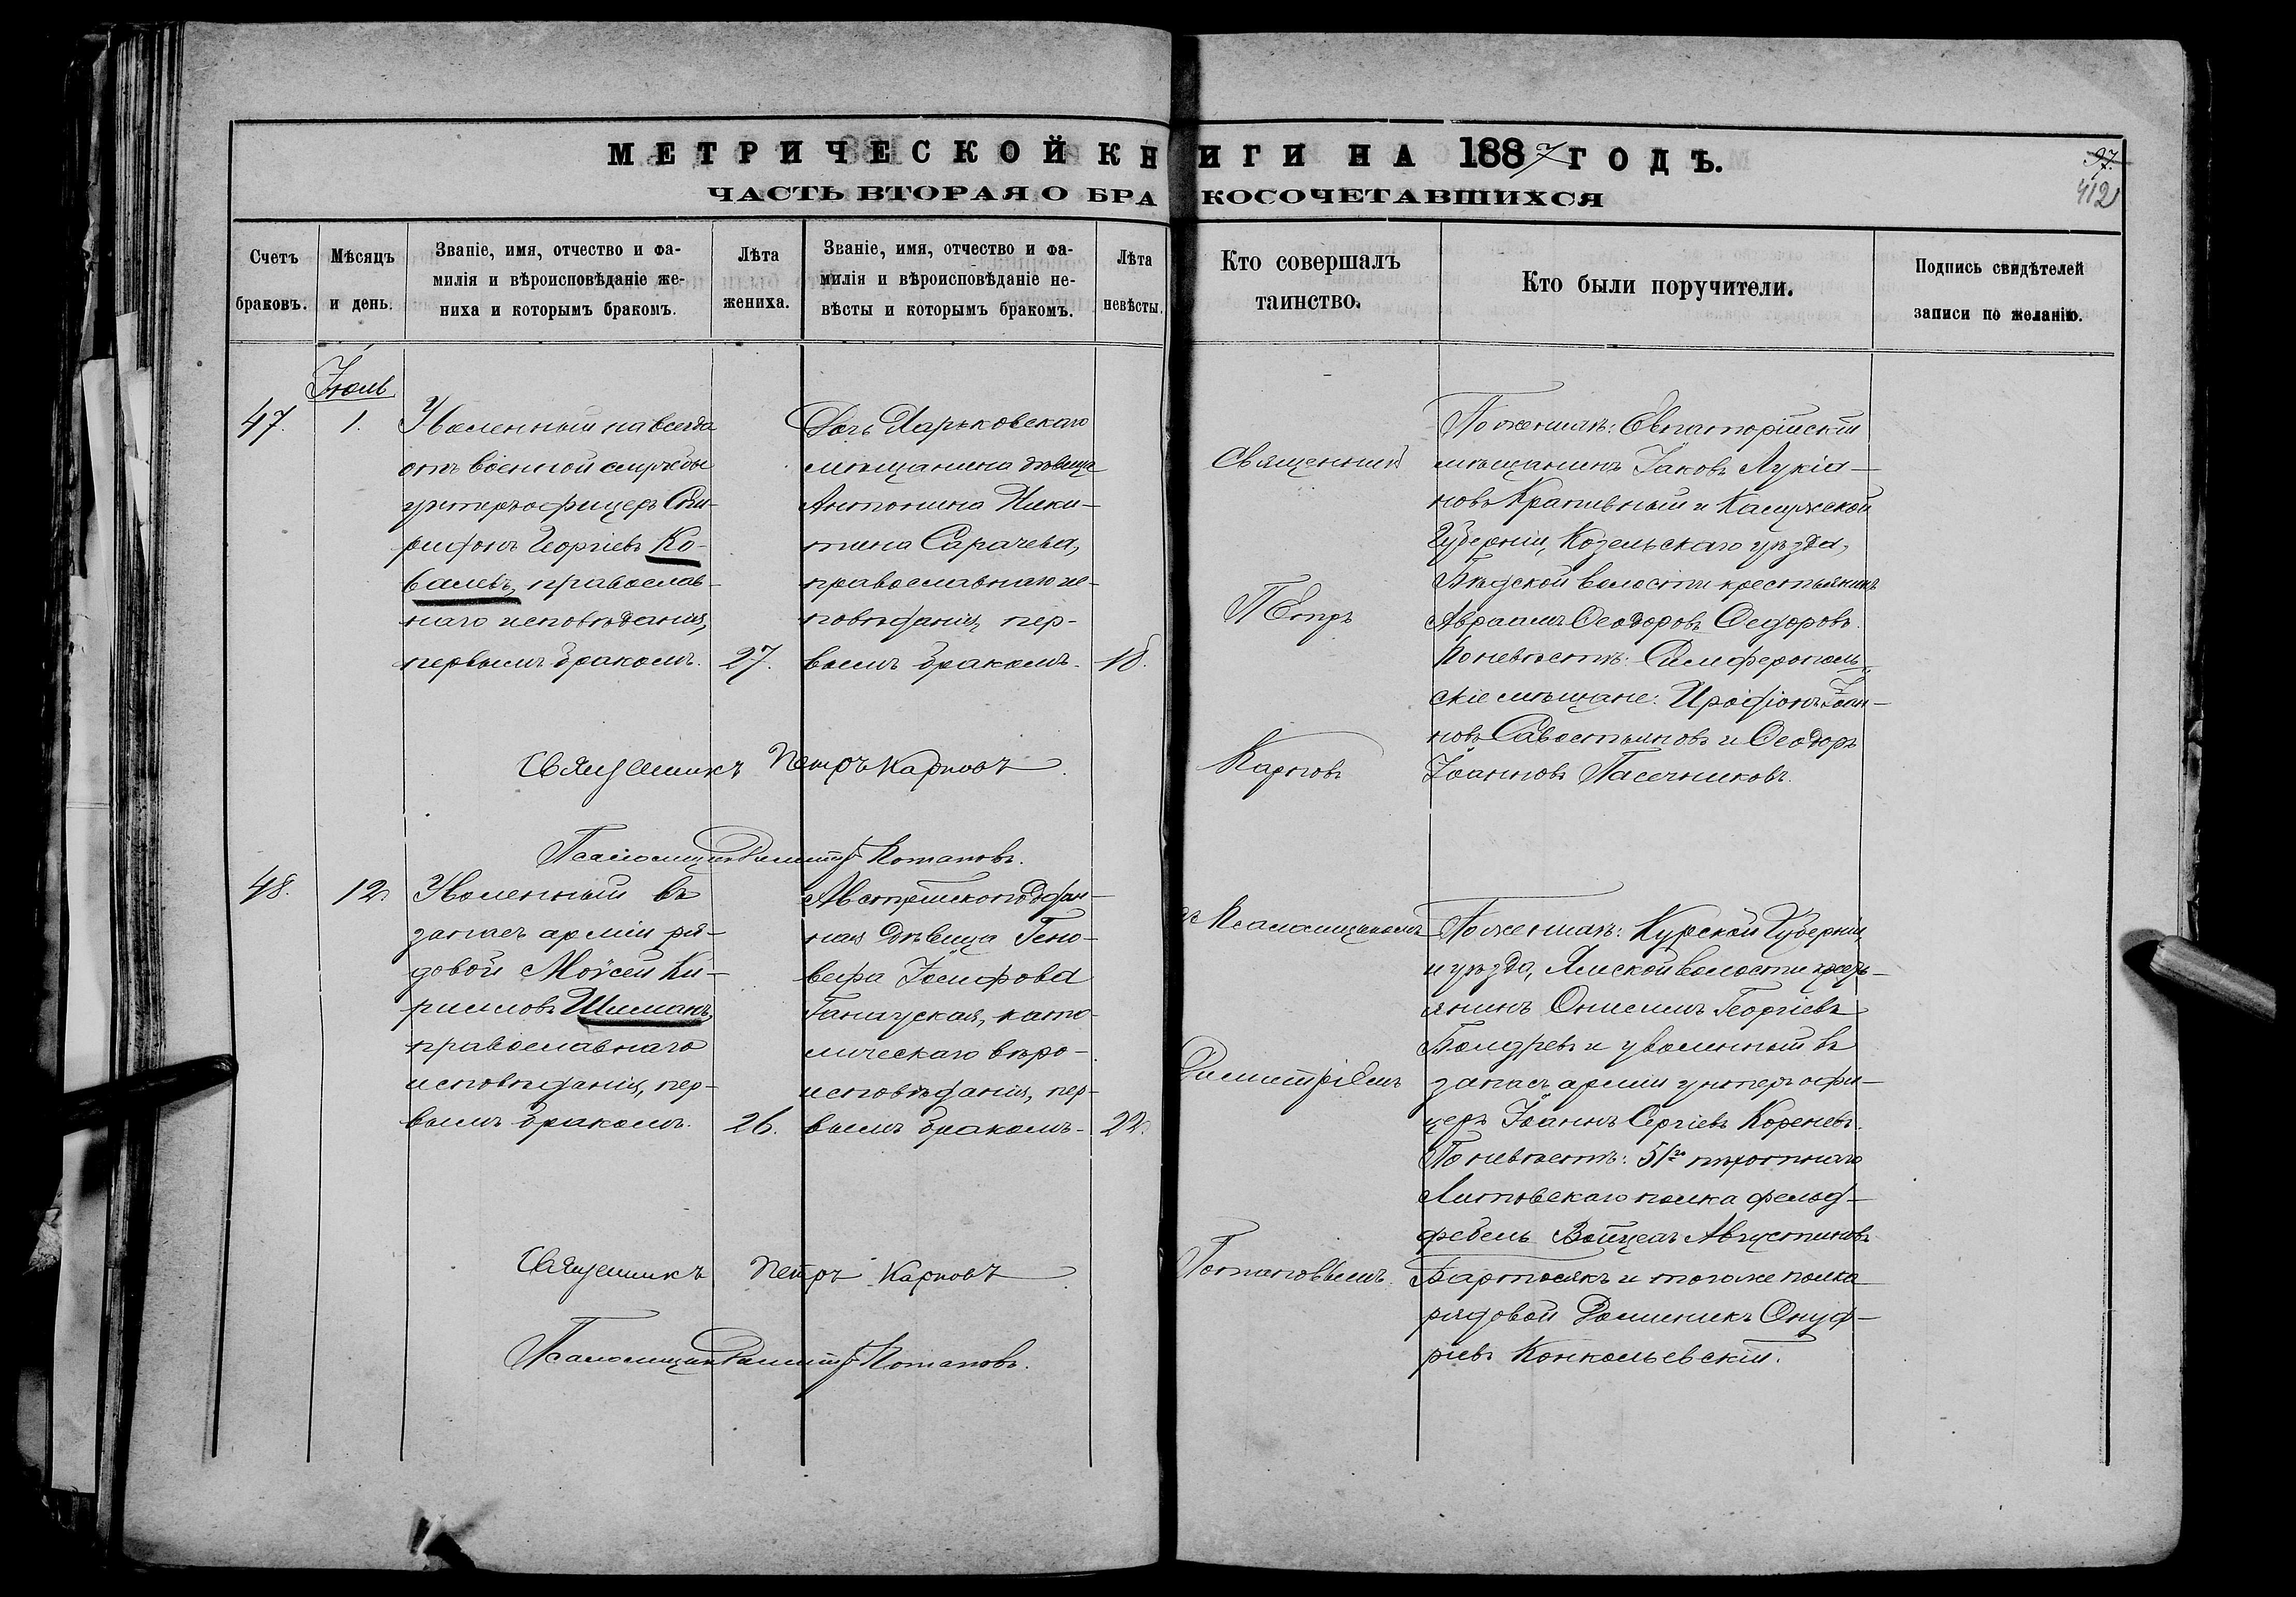 МЕТРИЧЕСКОЙ КНИГИ НА 1887 ГОДЪ.
ЧАСТЬ ВТОРАЯ О БРАКОСОЧЕТАВШИХСЯ
97.
412
Счетъ браковъ.
Мѣсяцъ и день.
Званіе, имя, отчество и фа-
милія и вѣроисповѣданіе же-
ниха и которымъ бракомъ.
Лѣта жениха.
Званіе, имя, отчество и фа-
милія и вѣроисповѣданіе не-
вѣсты и которымъ бракомъ.
Лѣта невѣсты.
Кто совершалъ
таинство.
Кто были поручители.
Подпись свидѣтелей
записи по желанію.
Іюль
47.
1.
Уволенный на всегда
отъ военной службы
унтеръ офицеръ Спи-
ридонъ Георгіевъ Ко-
валевъ, православ-
наго исповѣданія,
первымъ бракомъ.
27.
Дочь Харьковскаго
мѣщанина дѣвица
Антонина Ники-
тина Сарачева,
православнаго ис-
повѣданія, пер-
вымъ бракомъ.
18.
Священникъ
Петръ
Карповъ
По женихѣ: Евпаторійскій
мѣщанинъ Іаковъ Лукіа-
новъ Крапивный и Калужской
Губерніи, Козельскаго уѣзда,
волости крестьянинъ
Авраамъ Ѳеодоровъ Ѳедоровъ.
По невѣстѣ: Симферополь-
скіе мѣщане: Иродіонъ Іоан-
новъ Савостьяновъ и Ѳеодоръ
Іоанновъ Пасечниковъ.
Священникъ Петръ Карповъ
Псаломщикъ Димитрій Потаповъ.
48.
12
Уволенный въ
запасъ арміи ря-
довой Моѵсей Ки-
рилловъ Шиманъ,
православнаго
исповѣданія, пер-
вымъ бракомъ.
26.
Австрійскоподдан-
ная дѣвица Гено-
вефа Іосифова
като-
лическаго вѣро-
исповѣданія, пер-
вымъ бракомъ.
22.
съ Псаломщикомъ
Димитріемъ
Потаповымъ.
По женихѣ: Курской Губерніи
и уѣзда, Ямской волости кресть-
янинъ Онисимъ Георгіевъ
и уволенный въ
запасъ арміи унтеръ офи-
церъ Іоаннъ Сергіевъ Кореневъ.
По невѣстѣ: 51го пѣхотнаго
Литовскаго полка фельд-
фебель Войцехъ Августиновъ
Бартосякъ и того же полка
рядовой Доминикъ Онуф-
ріевъ Конкольевскій.
Священникъ Петръ Карповъ
Псаломщикъ Димитрій Потаповъ.